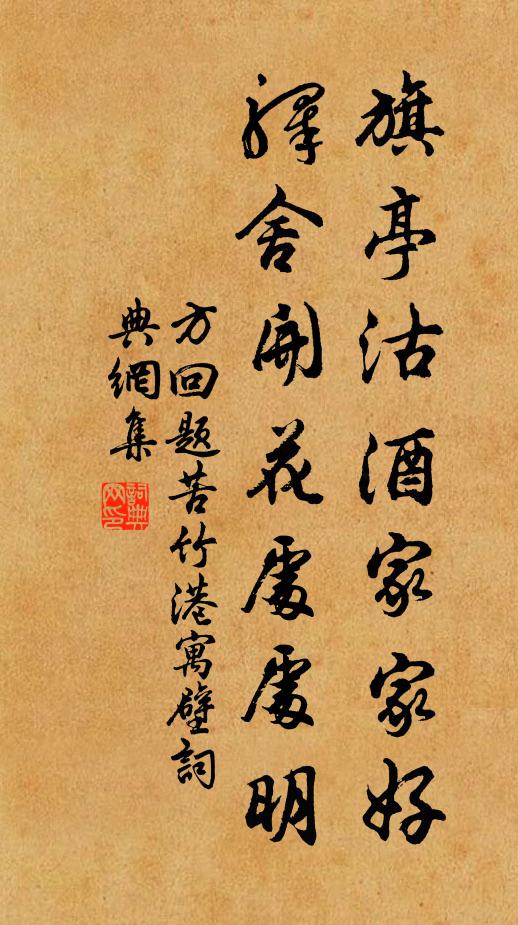 旗亭沽酒家家好
驛舍開花處處明
方回題苦竹港寓壁詞
典網集
詞典
网印